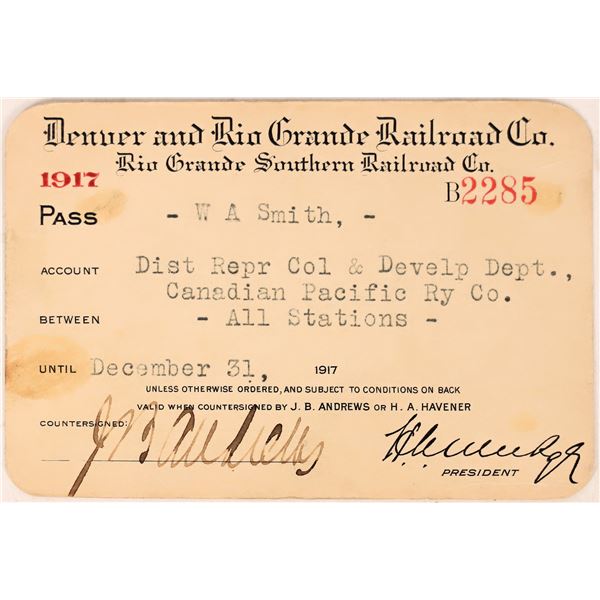 Denver and Rio Grande Railroad Co.
Rio Grande Southern Railroad Co.
1917
B2285
PASS - W A Smith, -
ACCOUNT Dist Repr Col & Develp Dept.,
Canadian Pacific Ry Co.
BETWEEN - All Stations -
UNTIL December 31, 1917
UNLESS OTHERWISE ORDERED, AND SUBJECT TO CONDITIONS ON BACK
VALID WHEN COUNTERSIGNED BY J. B. ANDREWS OR H. A. HAVENER
COUNTERSIGNED: J B Andrews
PRESIDENT